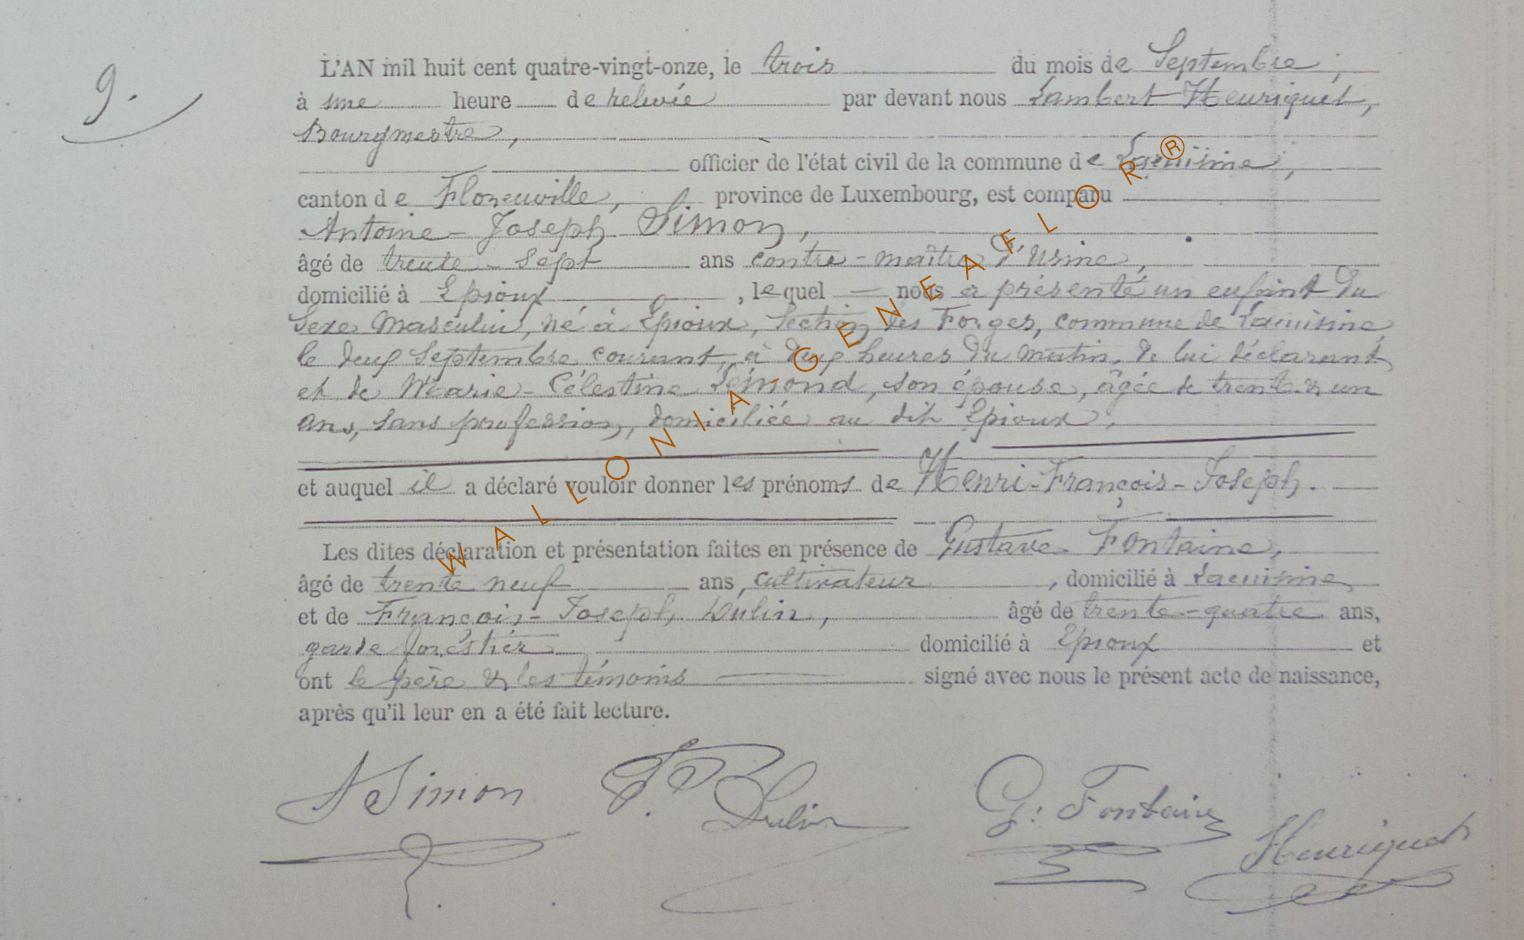 9.
L'AN mil huit cent quatre-vingt-onze, le trois du mois de Septembre,
à une heure de relevée par devant nous Lambert Henriquet,
Bourgmestre,
officier de l'état civil de la commune de Lacuisine,
canton de Florenville, province de Luxembourg, est comparu
Antoine-Joseph Simon,
âgé de trente-sept ans contre-maître d'usine,
domicilié à Epioux, lequel nous a présenté un enfant du
sexe masculin, né à Epioux, section des Forges, commune de Lacuisine
le deux Septembre courant, à deux heures du matin, de lui déclarant
et de Marie-Célestine Simond, son épouse, âgée de trente & un
ans, sans profession, domiciliée au dit Epioux,
et auquel il a déclaré vouloir donner les prénoms de Henri-François-Joseph.
Les dites déclaration et présentation faites en présence de Gustave Fontaine,
âgé de trente neuf ans, cultivateur, domicilié à Lacuisine
et de François-Joseph Dulin, âgé de trente-quatre ans,
garde forestier domicilié à Epioux et
ont le père & les témoins signé avec nous le présent acte de naissance,
après qu'il leur en a été fait lecture.
A Simon Dulin G. Fontaine Henriquet
WALLONIA-GENEAFLOR®